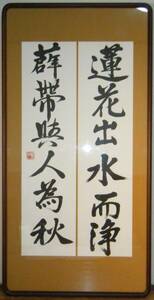 蓮花出水而浄
薜帯與人為秋